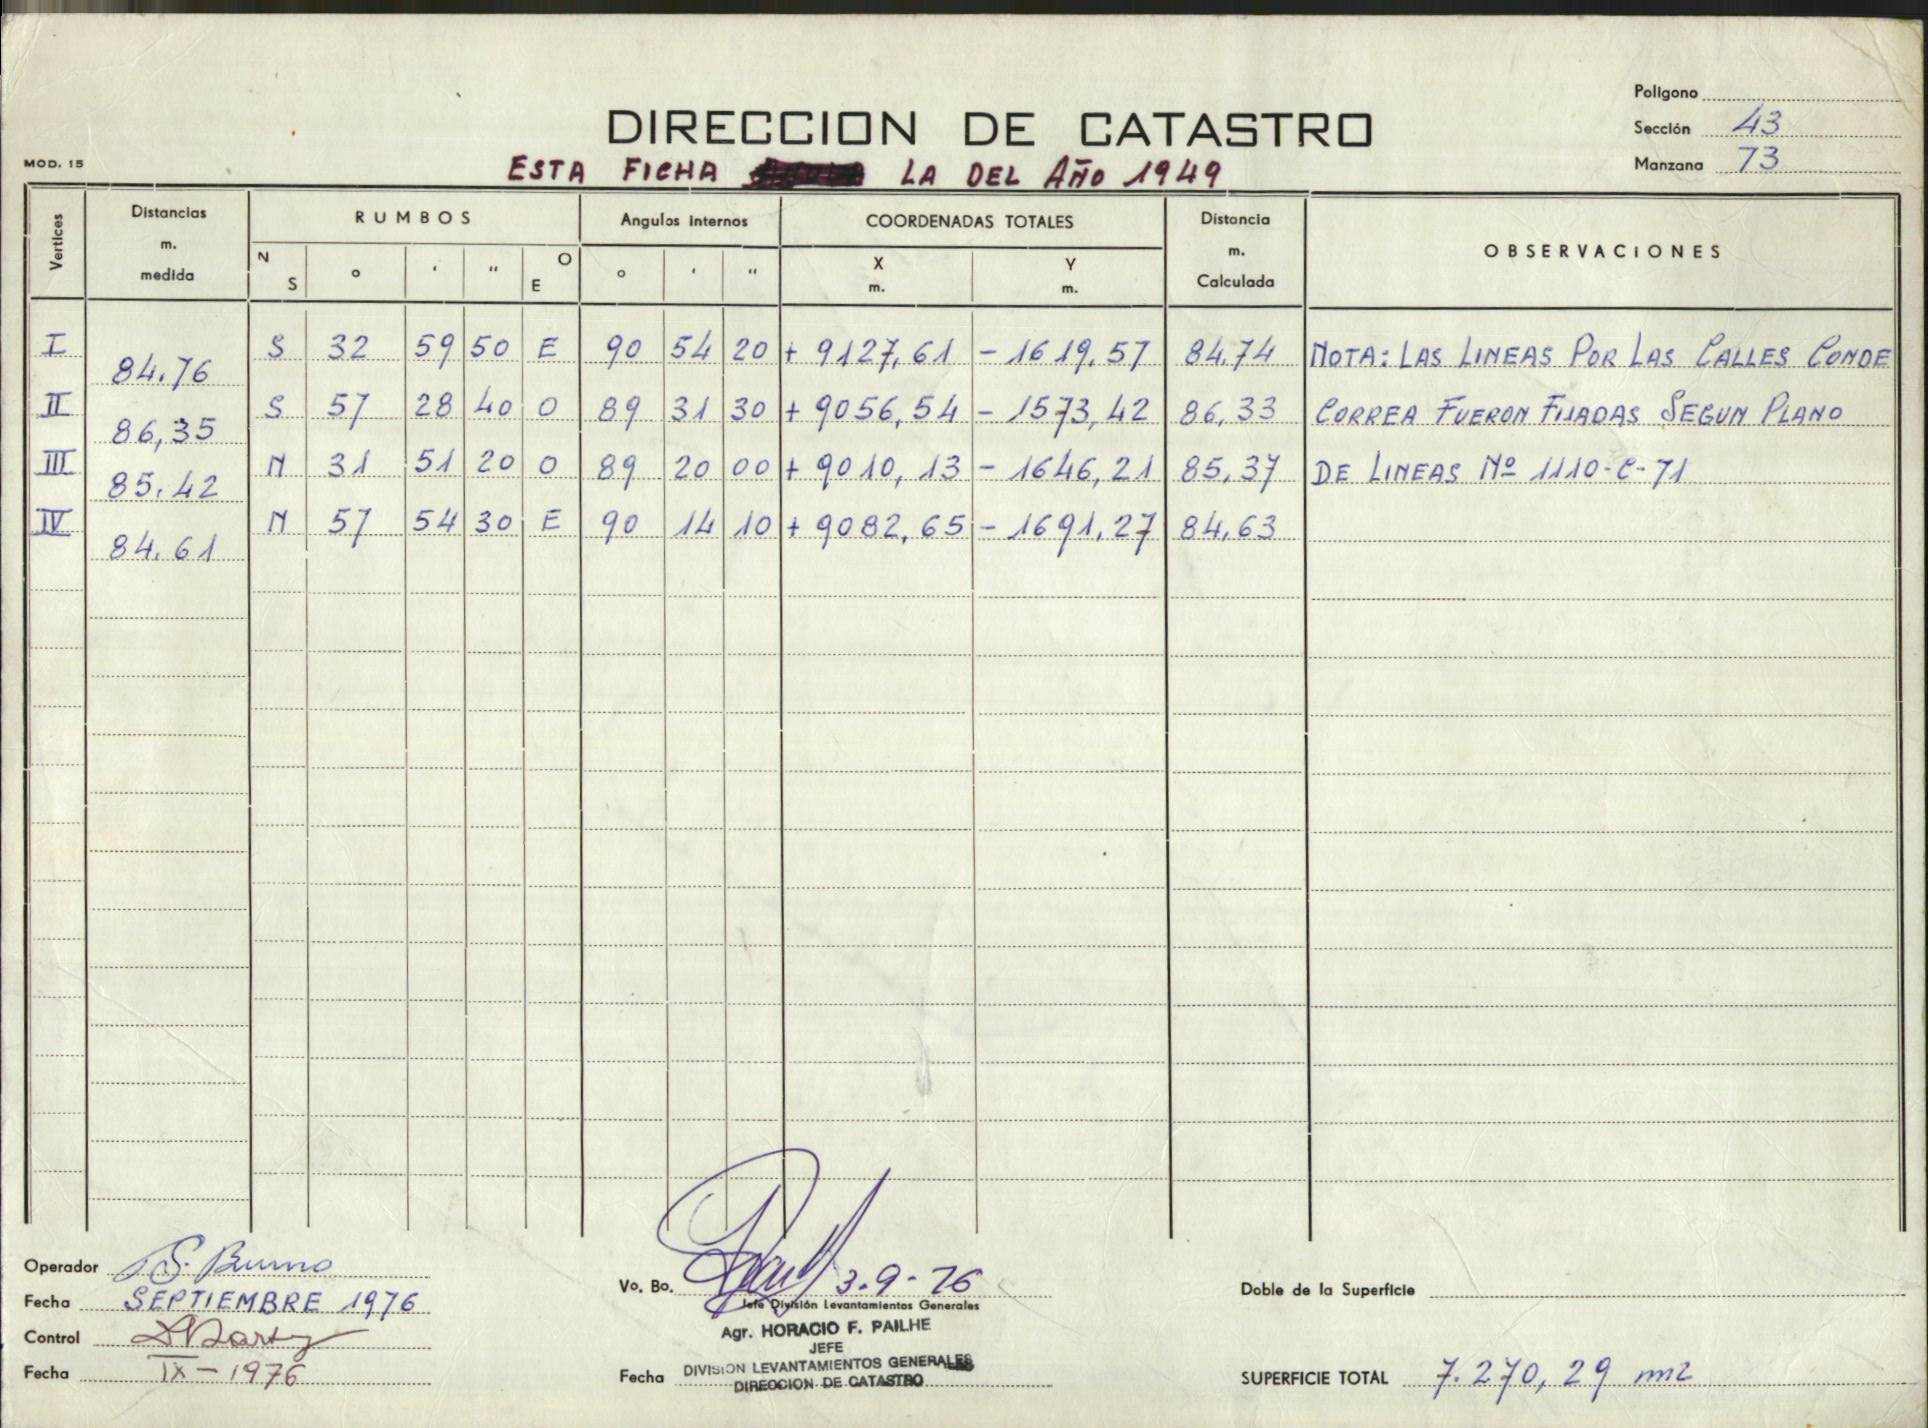 Poligono
DIRECCION DE CATASTRO
Sección 43
MOD. 15
ESTA FICHA LA DEL AÑO 1949
Manzana 73
Vertices
Distancias m. medida
RUMBOS
Angulos internos
COORDENADAS TOTALES
Distancia m. Calculada
OBSERVACIONES
N S ° ' " O E
° ' "
X m.
Y m.
I 84.76 S 32 59 50 E 90 54 20 + 9127,61 - 1619,57 84,74 NOTA: LAS LINEAS POR LAS CALLES CONDE
II 86,35 S 57 28 40 O 89 31 30 + 9056,54 - 1573,42 86,33 CORREA FUERON FIJADAS SEGUN PLANO
III 85.42 N 31 51 20 O 89 20 00 + 9010,13 - 1646,21 85,37 DE LINEAS Nº 1110-C-71
IV 84.61 N 57 54 30 E 90 14 10 + 9082,65 - 1691,27 84,63
Operador S. Bruno
Fecha SEPTIEMBRE 1976
Control
Fecha IX - 1976
Vo. Bo. 3-9-76
Jefe División Levantamientos Generales
Agr. HORACIO F. PAILHE
JEFE
DIVISION LEVANTAMIENTOS GENERALES
Fecha
DIRECCION DE CATASTRO
Doble de la Superficie
SUPERFICIE TOTAL 7.270,29 m2